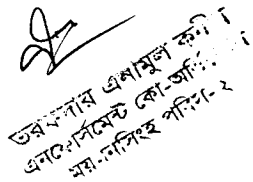 তরফদার এনামুল কবীর
এনফোর্সমেন্ট কো-অর্ডিনেটর
ময়মনসিংহ পবিস-২